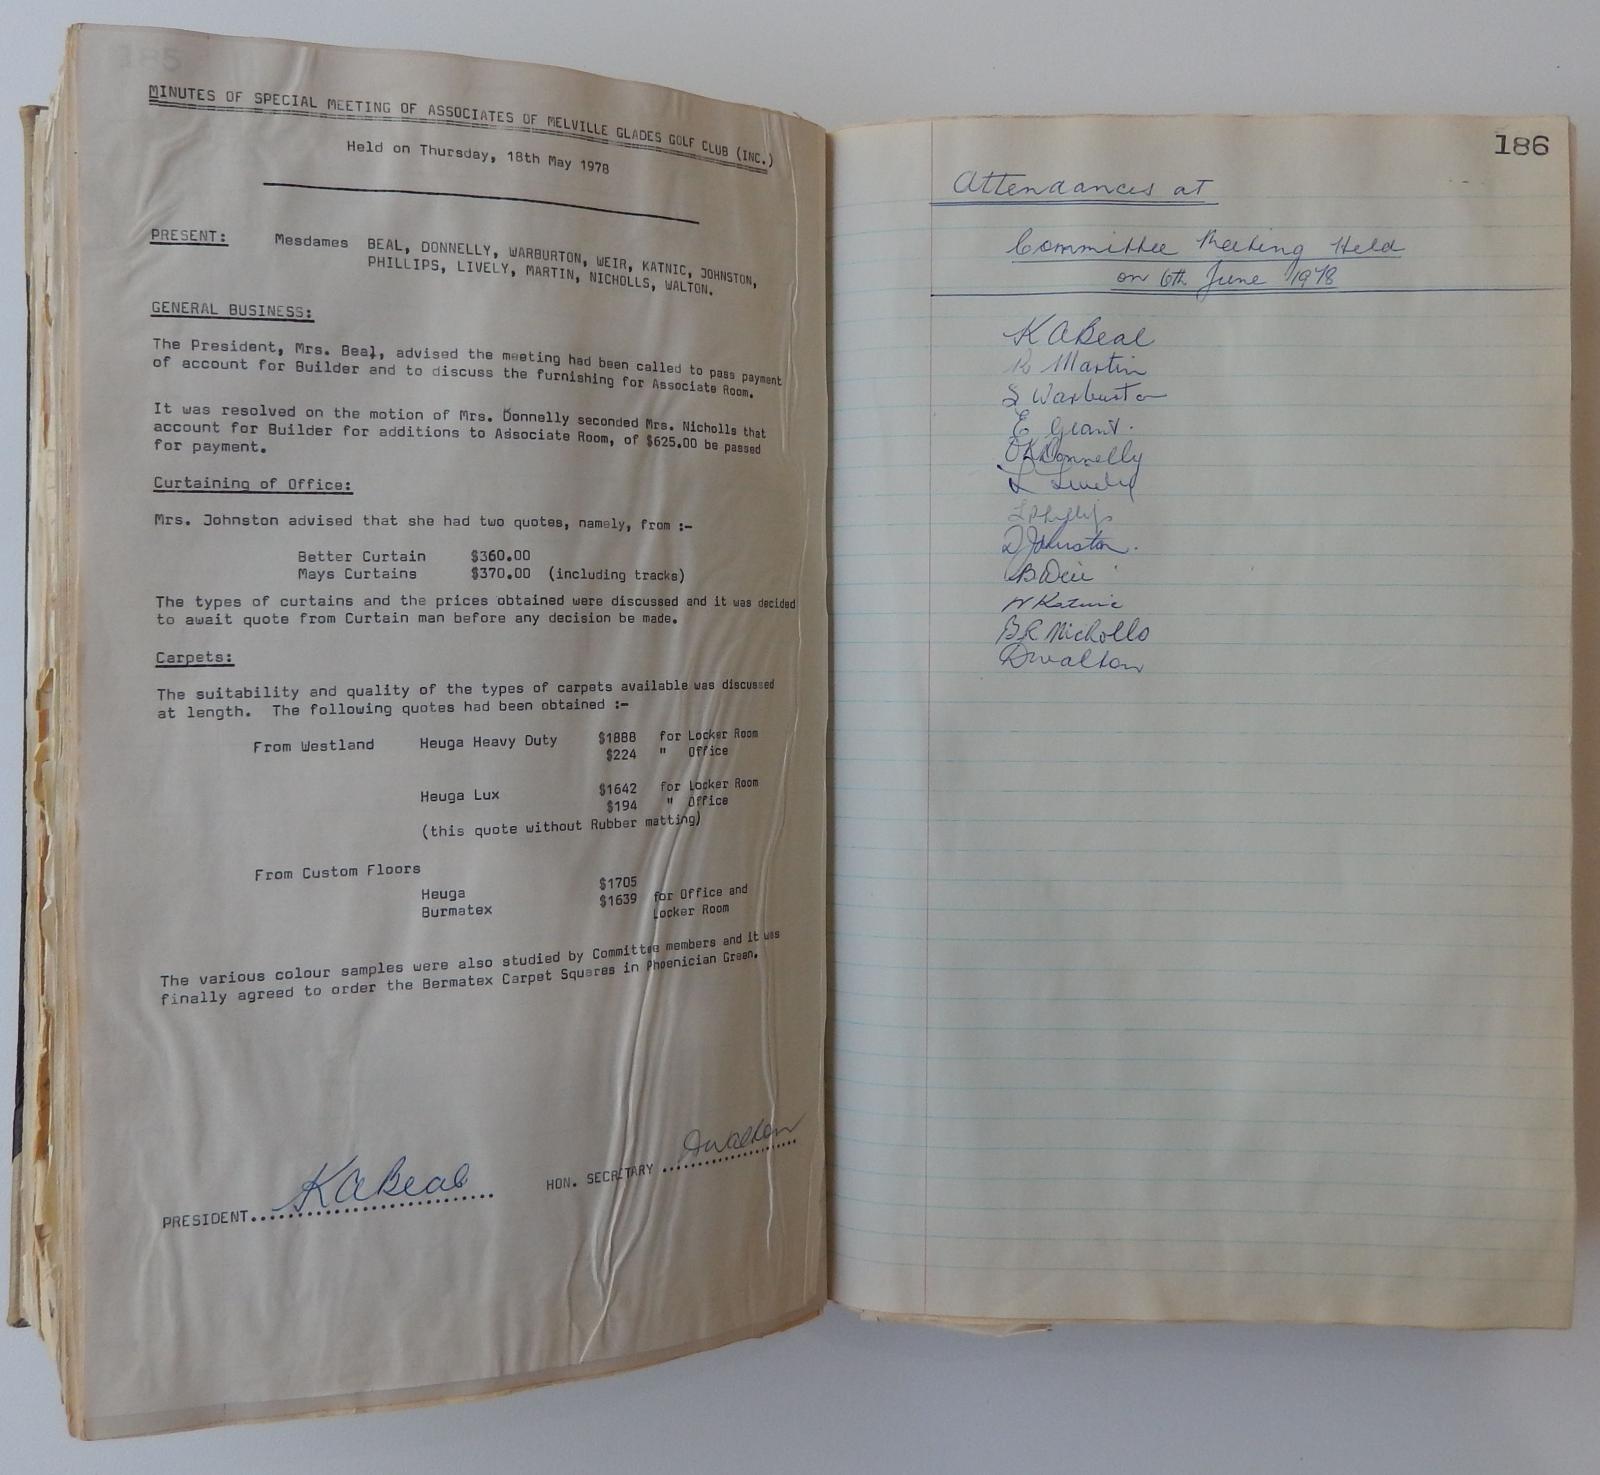 185
MINUTES OF SPECIAL MEETING OF ASSOCIATES OF MELVILLE GLADES GOLF CLUB (INC.)
Held on Thursday, 18th May 1978
PRESENT: Mesdames BEAL, DONNELLY, WARBURTON, WEIR, KATNIC, JOHNSTON,
PHILLIPS, LIVELY, MARTIN, NICHOLLS, WALTON.
GENERAL BUSINESS:
The President, Mrs. Beal, advised the meeting had been called to pass payment
of account for Builder and to discuss the furnishing for Associate Room.
It was resolved on the motion of Mrs. Donnelly seconded Mrs. Nicholls that
account for Builder for additions to Associate Room, of $625.00 be passed
for payment.
Curtaining of Office:
Mrs. Johnston advised that she had two quotes, namely, from :-
Better Curtain $360.00
Mays Curtains $370.00 (including tracks)
The types of curtains and the prices obtained were discussed and it was decided
to await quote from Curtain man before any decision be made.
Carpets:
The suitability and quality of the types of carpets available was discussed
at length. The following quotes had been obtained :-
From Westland Heuga Heavy Duty $1888 for Locker Room
$224 " Office
Heuga Lux $1642 for Locker Room
$194 " Office
(this quote without Rubber matting)
From Custom Floors
Heuga $1705
Burmatex $1639 for Office and
Locker Room
The various colour samples were also studied by Committee members and it was
finally agreed to order the Bermatex Carpet Squares in Phoenician Green.
PRESIDENT.... K A Beal HON. SECRETARY .... D Walton
186
Attendances at
Committee Meeting Held
on 6th June 1978
K A Beal
R Martin
S Warburton
E Grant.
Donnelly
L Lively
L Phillips
D Johnston.
B Weir
N Katnic
B R Nicholls
D Walton